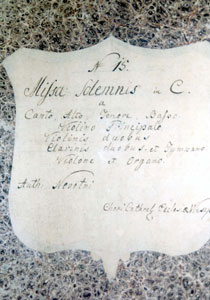 N 15.
Missa Solemnis in C.
a
Canto, Alto, Tenore, Basso.
Violino Principale
Violinis duobus
Clarinis duobus, et Tympano
Violone et Organo.
Auth: Novotni
Chori Cathed: